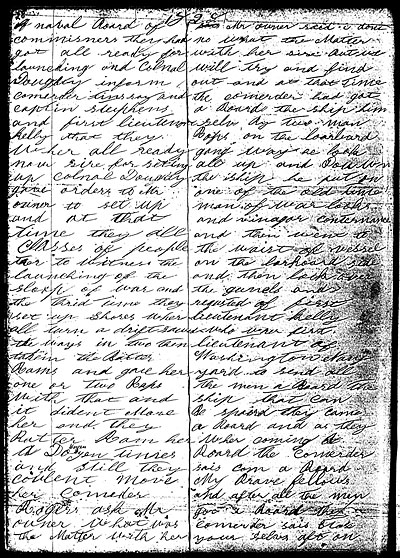 A naval Board of
commisners then had
got all ready for
launching and Colnal
Doughty inform
comerder tinsley and
captin stephens
and first lieutenent
Kelly that they
W her all ready
now sir for setting
up Colnal Doughty
gave orders to Mr
owner to set up
and at that
time they all
Masses of people
ther to witness the
launching of the
sloop of war and
the thrid time they
set up shores wher
all turn a drift
the ways in two then
the Bitter
Rams and gave her
one or two Raps
with that and
it dident Move
her and they
But ter Ram her
A Dozen times
and still they
coulent move
her Comeder
Rogers ask Mr
owner What was
the Matter with her
Mr owner said i dont
no what the Matter
with her sir but we
will try and find
out and at that time
the comerder he got
a Board the ship him
selve by two man
Rops on the larboard
gang way he look
all up and down
the ship he put on
one of the old time
man of war looks
and
and then went to
the waist of vessel
on the larboard side
and then look over
the gunels and
requsted of first
lieutenant kelly
who was first
lieutenant of
Washington navy
yard to send all
the men a Board the
ship that can
be spaerd they came
a Board and as they
wher coming a
Board the Comerder
sais com a Board
My Brave fellows
and after all the men
got a Board the
Comerder sais
your selves aft on